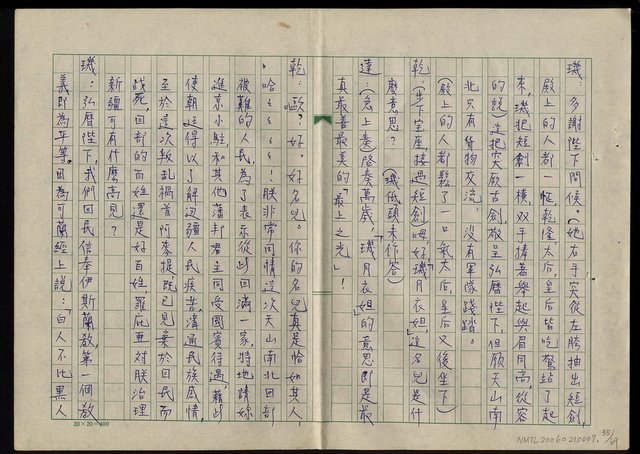 璣:多謝陛下問候。(她右手突從左胯抽出短劍,
殿上的人都一怔乾隆太后,皇后皆吃驚站了起
來,璣把短劍一橫,双手捧著舉起與眉同高,從容
的說)這把突厥古劍,敬呈弘曆陛下,但欣天山南
北只有貨物交流,沒有軍隊踐踏。
(殿上的人都鬆了一口氣太后,皇后又復坐下)
乾:(再下宝座,接過短劍)嗯,好,「璣月衣妲」,這名兒是什
麼意思?(璣低頭未作答)
達:(急上奏)啓奏萬歲,「璣月衣妲」的意思即是最
真最善最美的「最上之光」!
乾:歐?好,好名兒。你的名兒真是恰如其人
,哈ミミミミ!朕非常同情這次天山南北回部
被難的人民,為了表示從此回滿一家,特地請妳
進京小駐,和其他藩邦君主同受國賓待遇,藉此
使朝廷得以了解边疆人民疾苦,溝通民族感情,
至於這次叛乱禍首阿麥提,既已見棄於回民而
战死,回部的百姓還是好百姓,羅庇亜对朕治理
新疆可有什麼高見?
璣:弘曆陛下,我們回民信奉伊斯蘭敎,第一個敎
義即為平等。因為可蘭經上說:「白人不比黑人
20×20=400
NMTL20060210007,
55/69